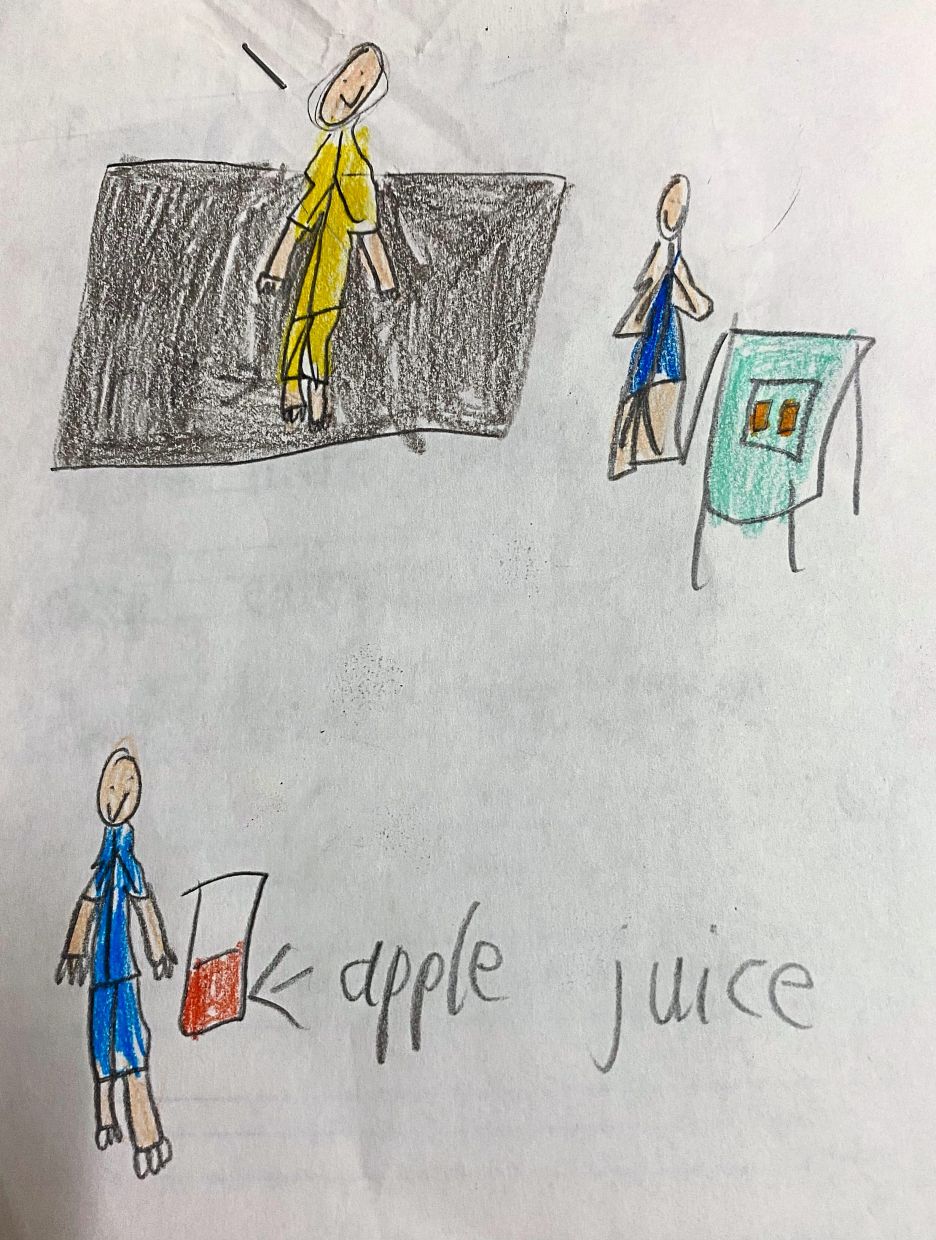 apple juice